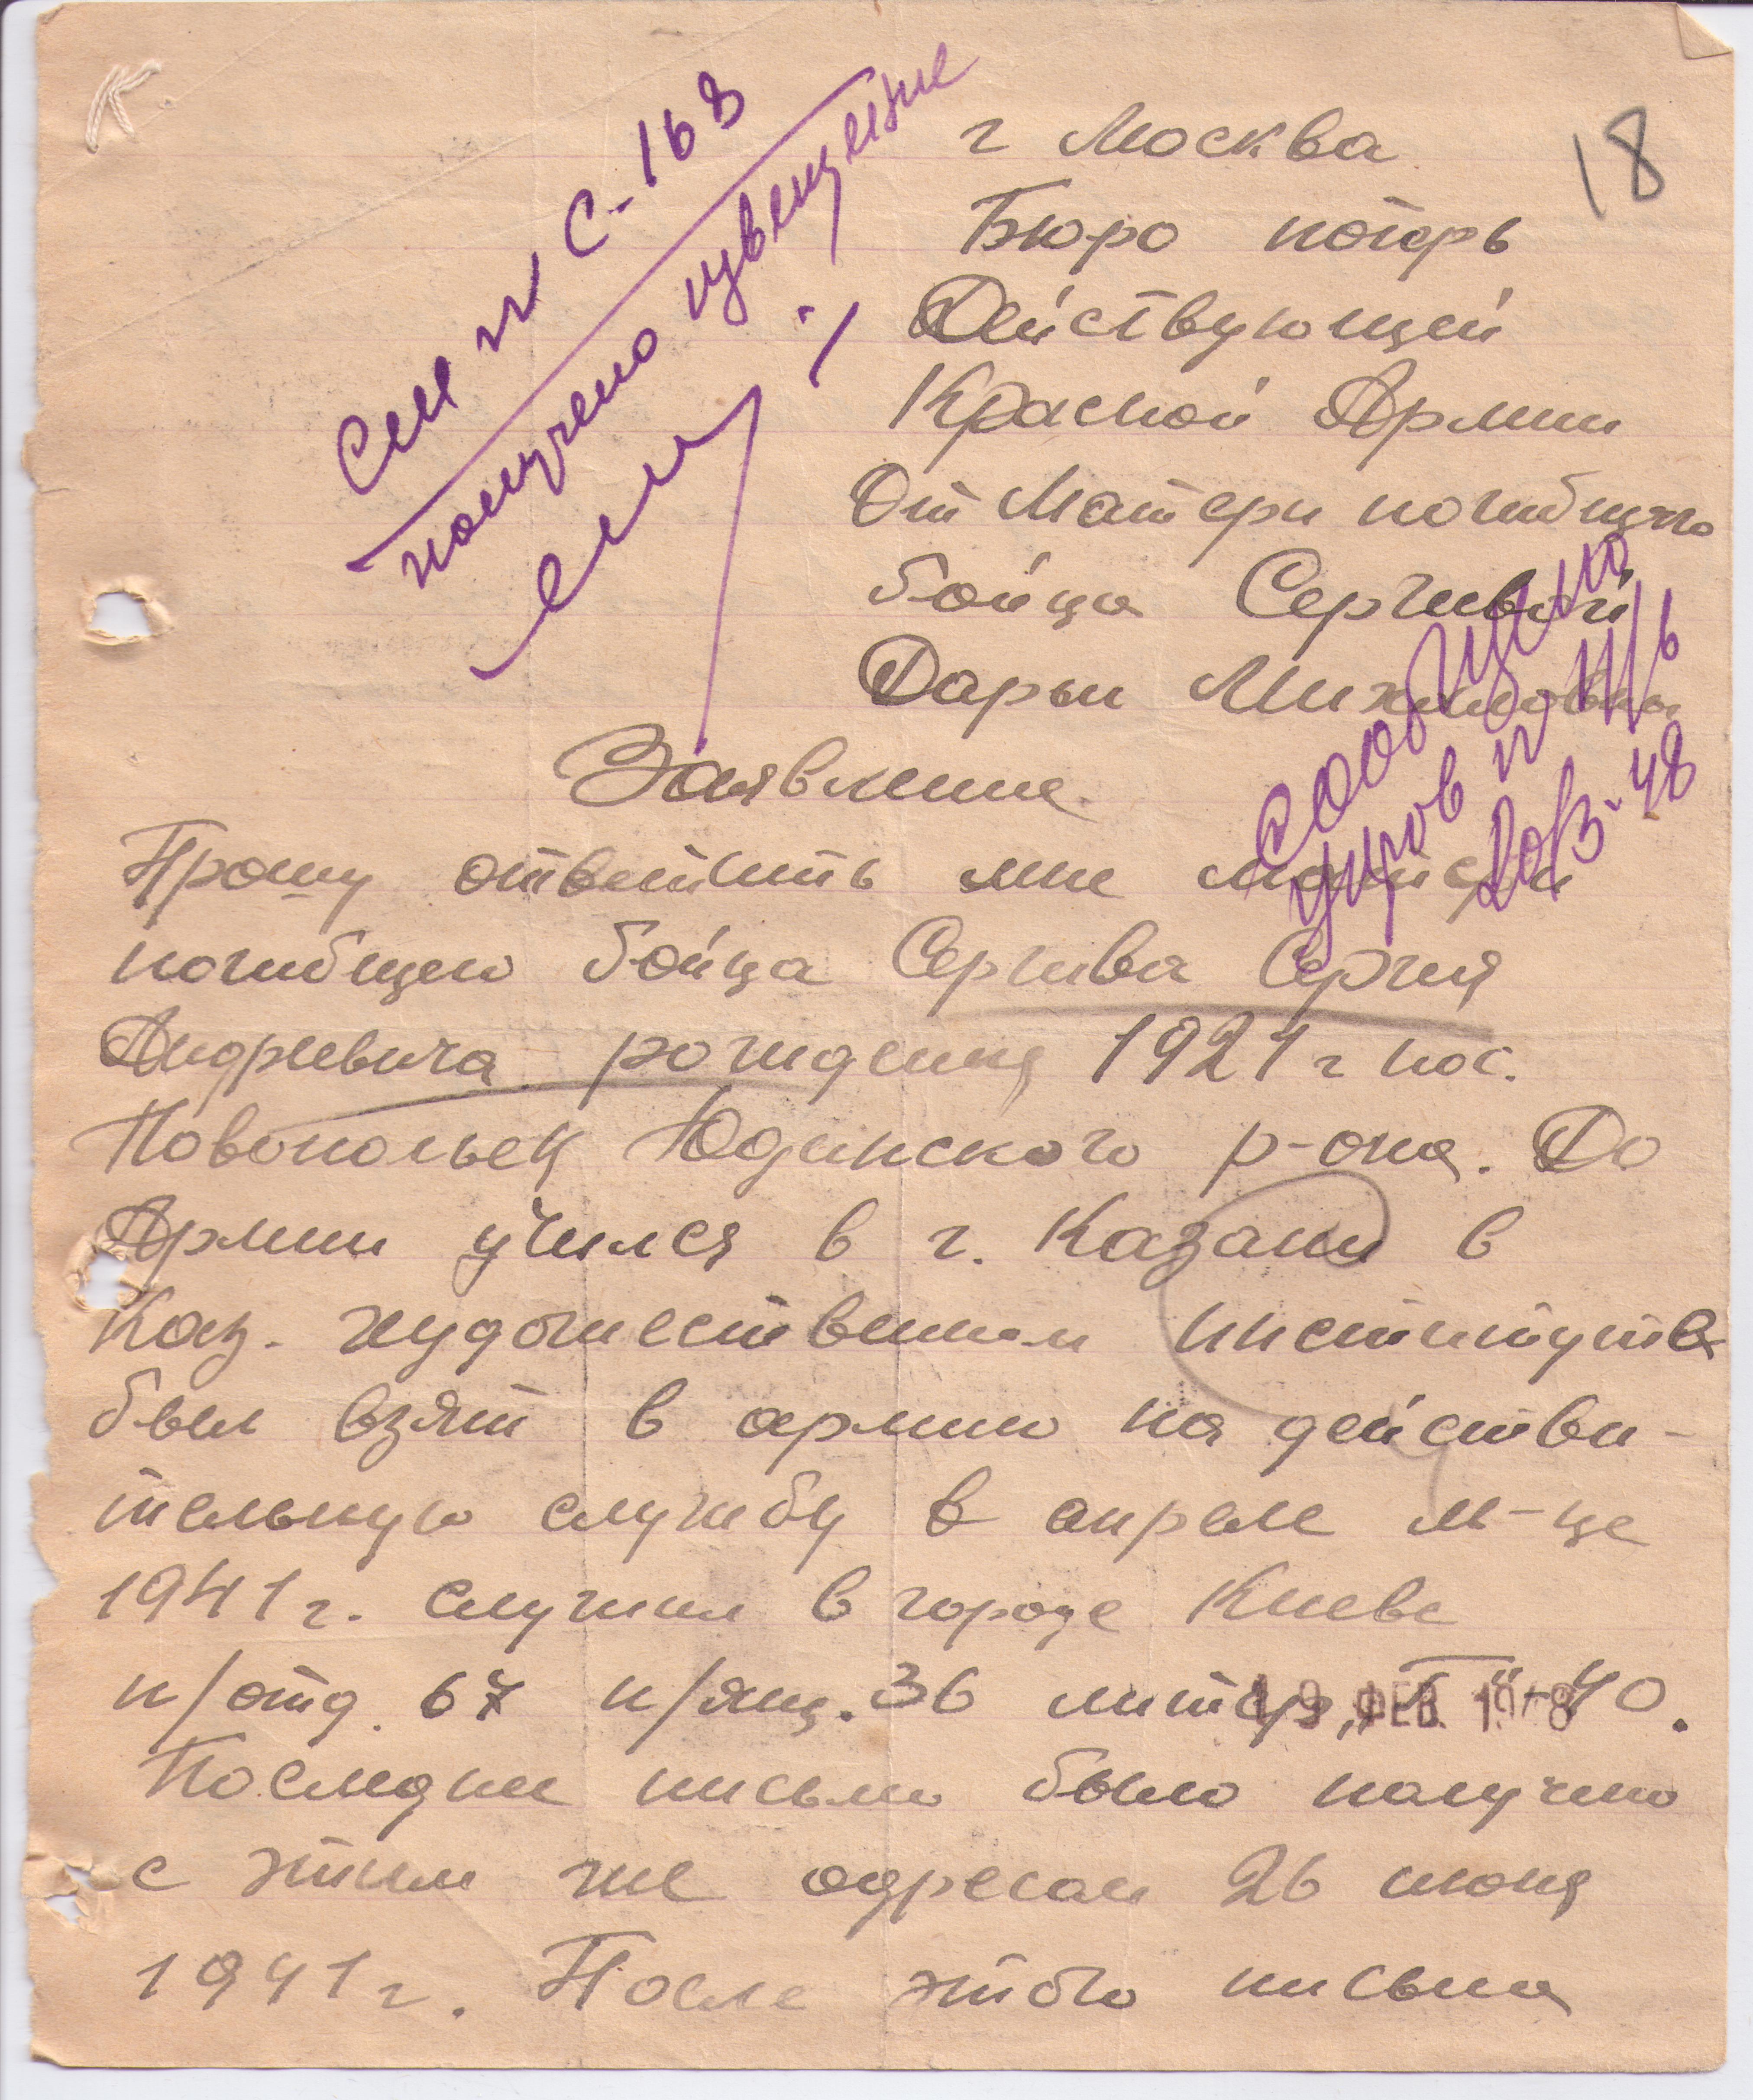 18
См № С-168
получено извещение
г Москва
Бюро потерь
Действующей
Красной Армии
От Матери погибшего
бойца Сергивой
Дарьи Михаловны
сообщено
№ 1116
Заявление.
Прошу ответить мне матери
погибшего бойца Сергива Сергия
Андриевича рождения 1921 г пос.
Новопольск Юдинского р-она. До
Армии учился в г. Казани в
Каз. художественном институте
был взят в армию на действи-
тельную службу в апреле м-це
1941 г. служил в городе Киеве
п/отд. 67 п/ящ. 36 литер „Г“-40.
19 ФЕВ 1948
Последние письмо было получено
с этим же адресом 26 июня
1941 г. После этого письма